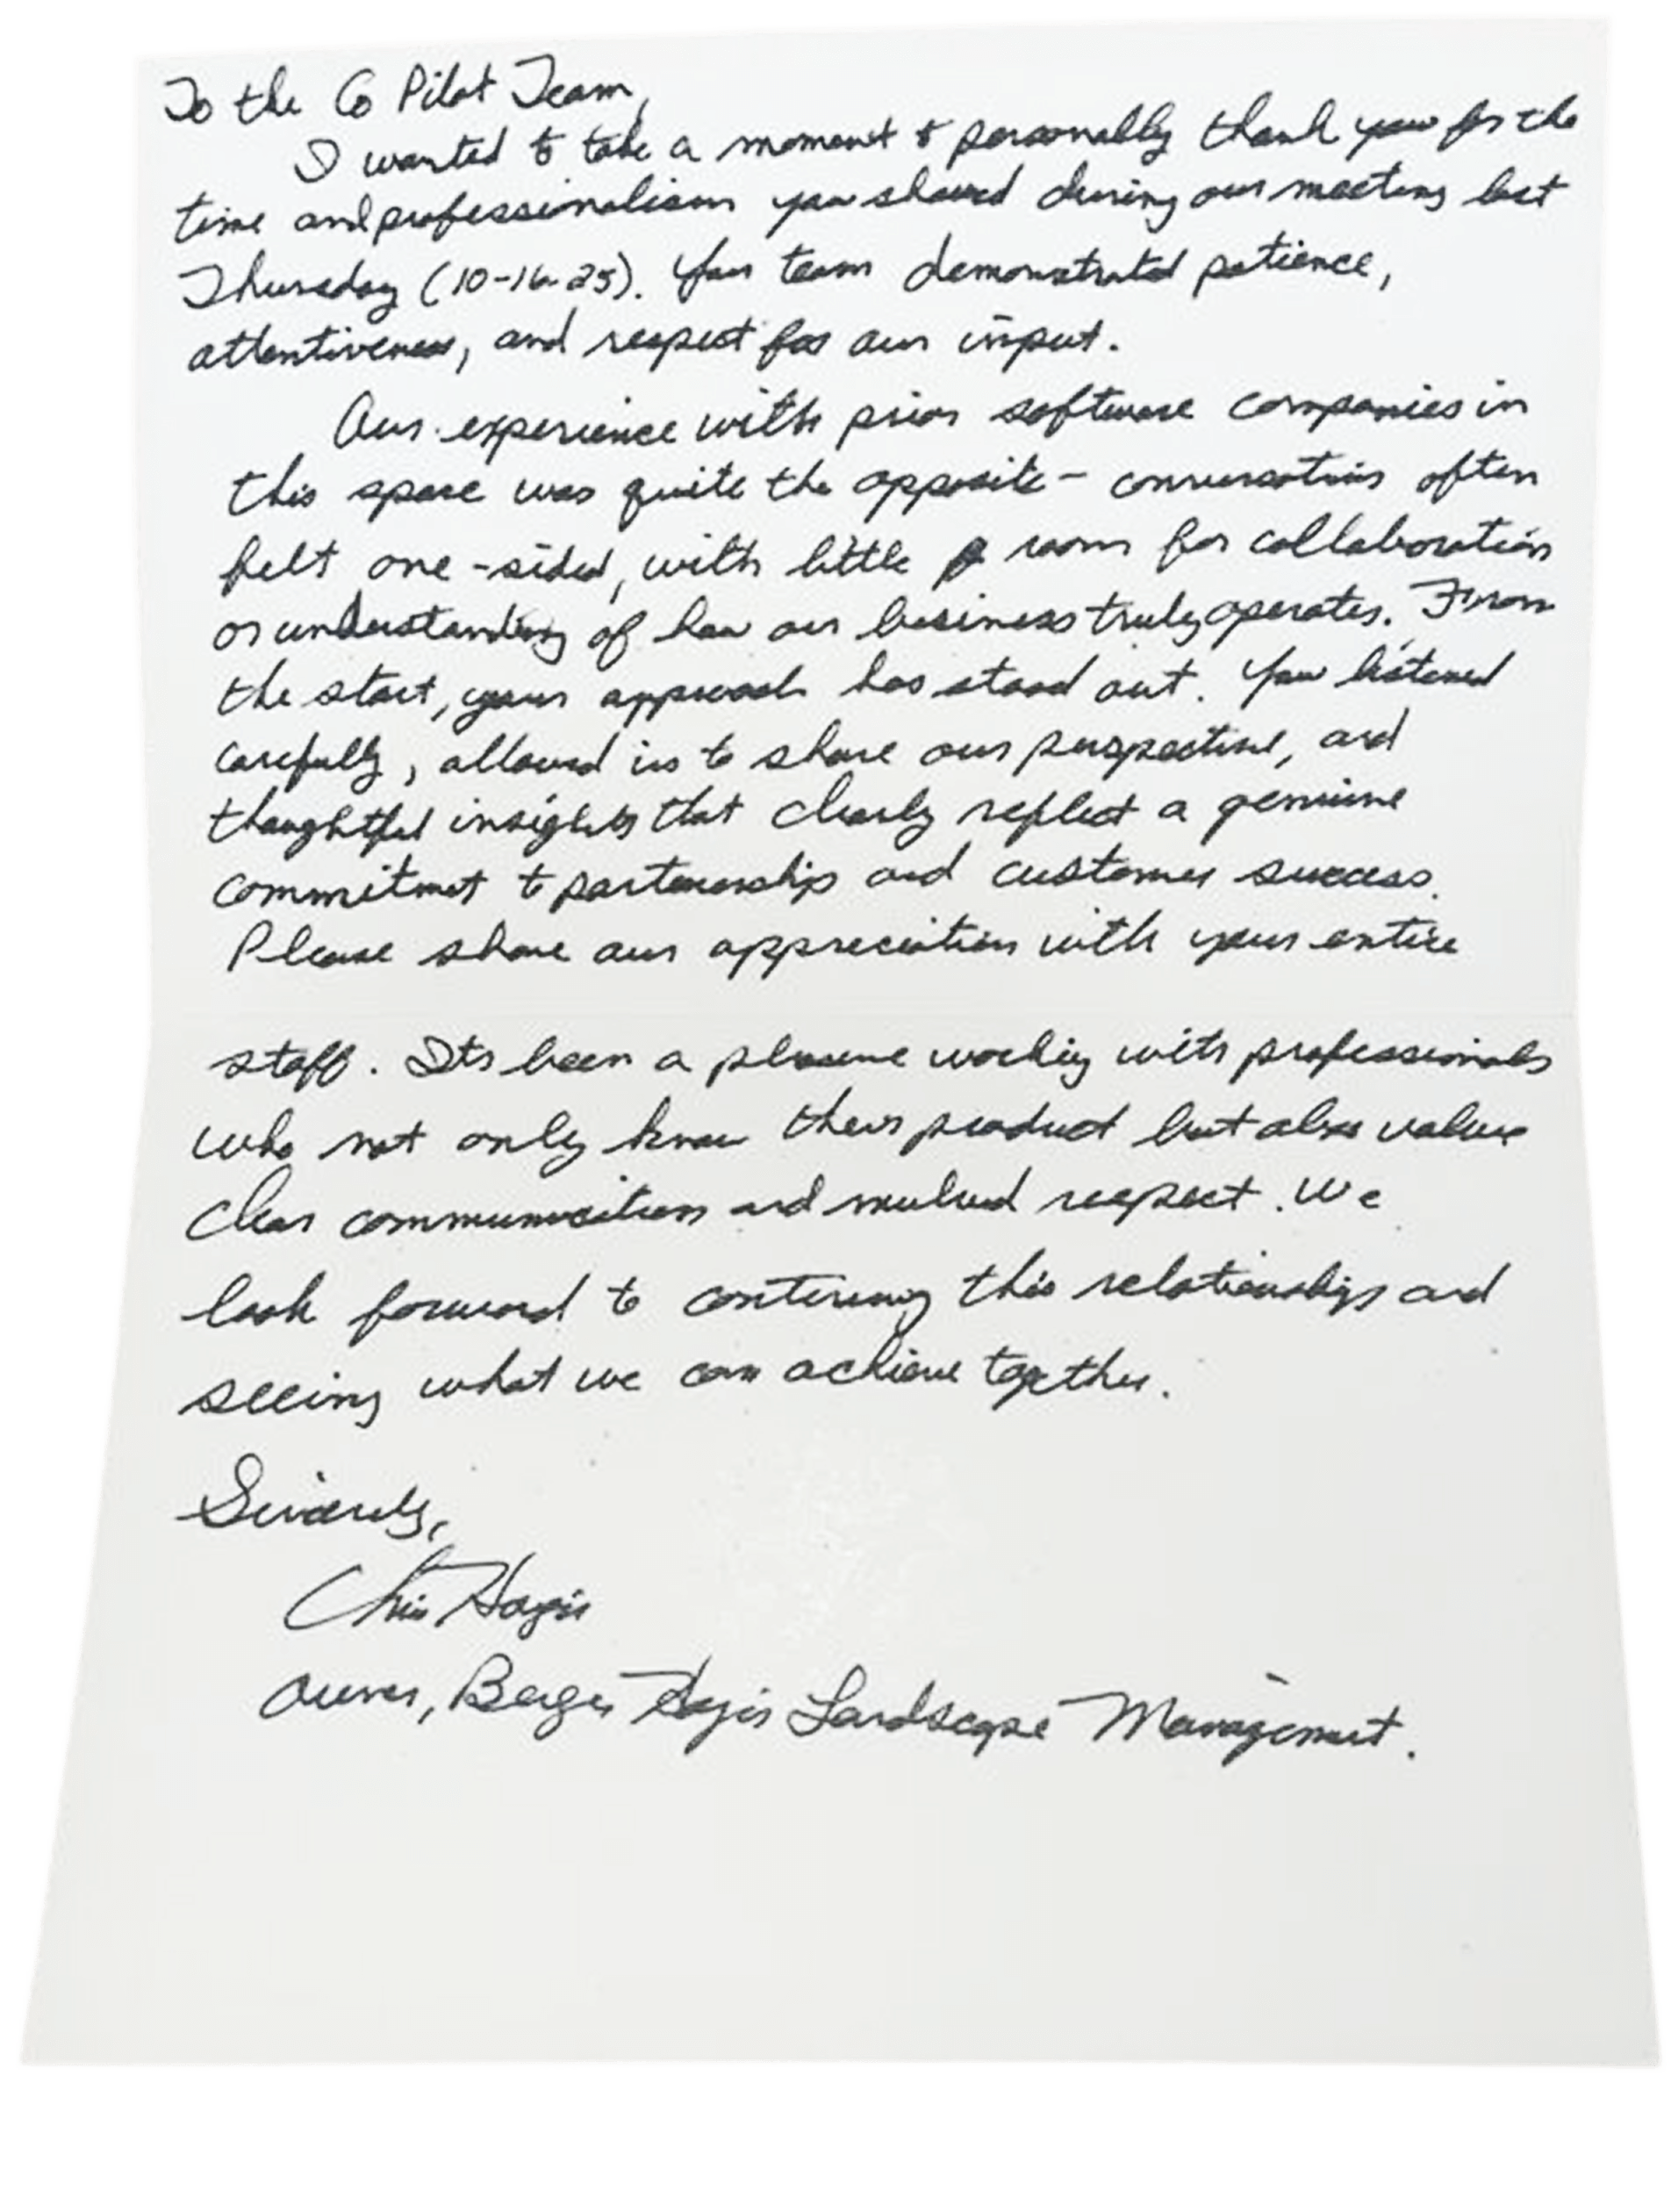 To the Co Pilot Team,
I wanted to take a moment to personally thank you for the
time and professionalism you showed during our meeting last
Thursday (10-16-25). Your team demonstrated patience,
attentiveness, and respect for our input.
Our experience with prior software companies in
this space was quite the opposite - conversations often
felt one-sided, with little room for collaboration
or understanding of how our business truly operates. From
the start, your approach has stood out. You listened
carefully, allowed us to share our perspective, and
thoughtful insights that clearly reflect a genuine
commitment to partnership and customer success.
Please share our appreciation with your entire
staff. Its been a pleasure working with professionals
who not only know their product but also value
clear communication and mutual respect. We
look forward to continuing this relationship and
seeing what we can achieve together.
Sincerely,
Chris Hayes
Owner, Berger Hayes Landscape Management.